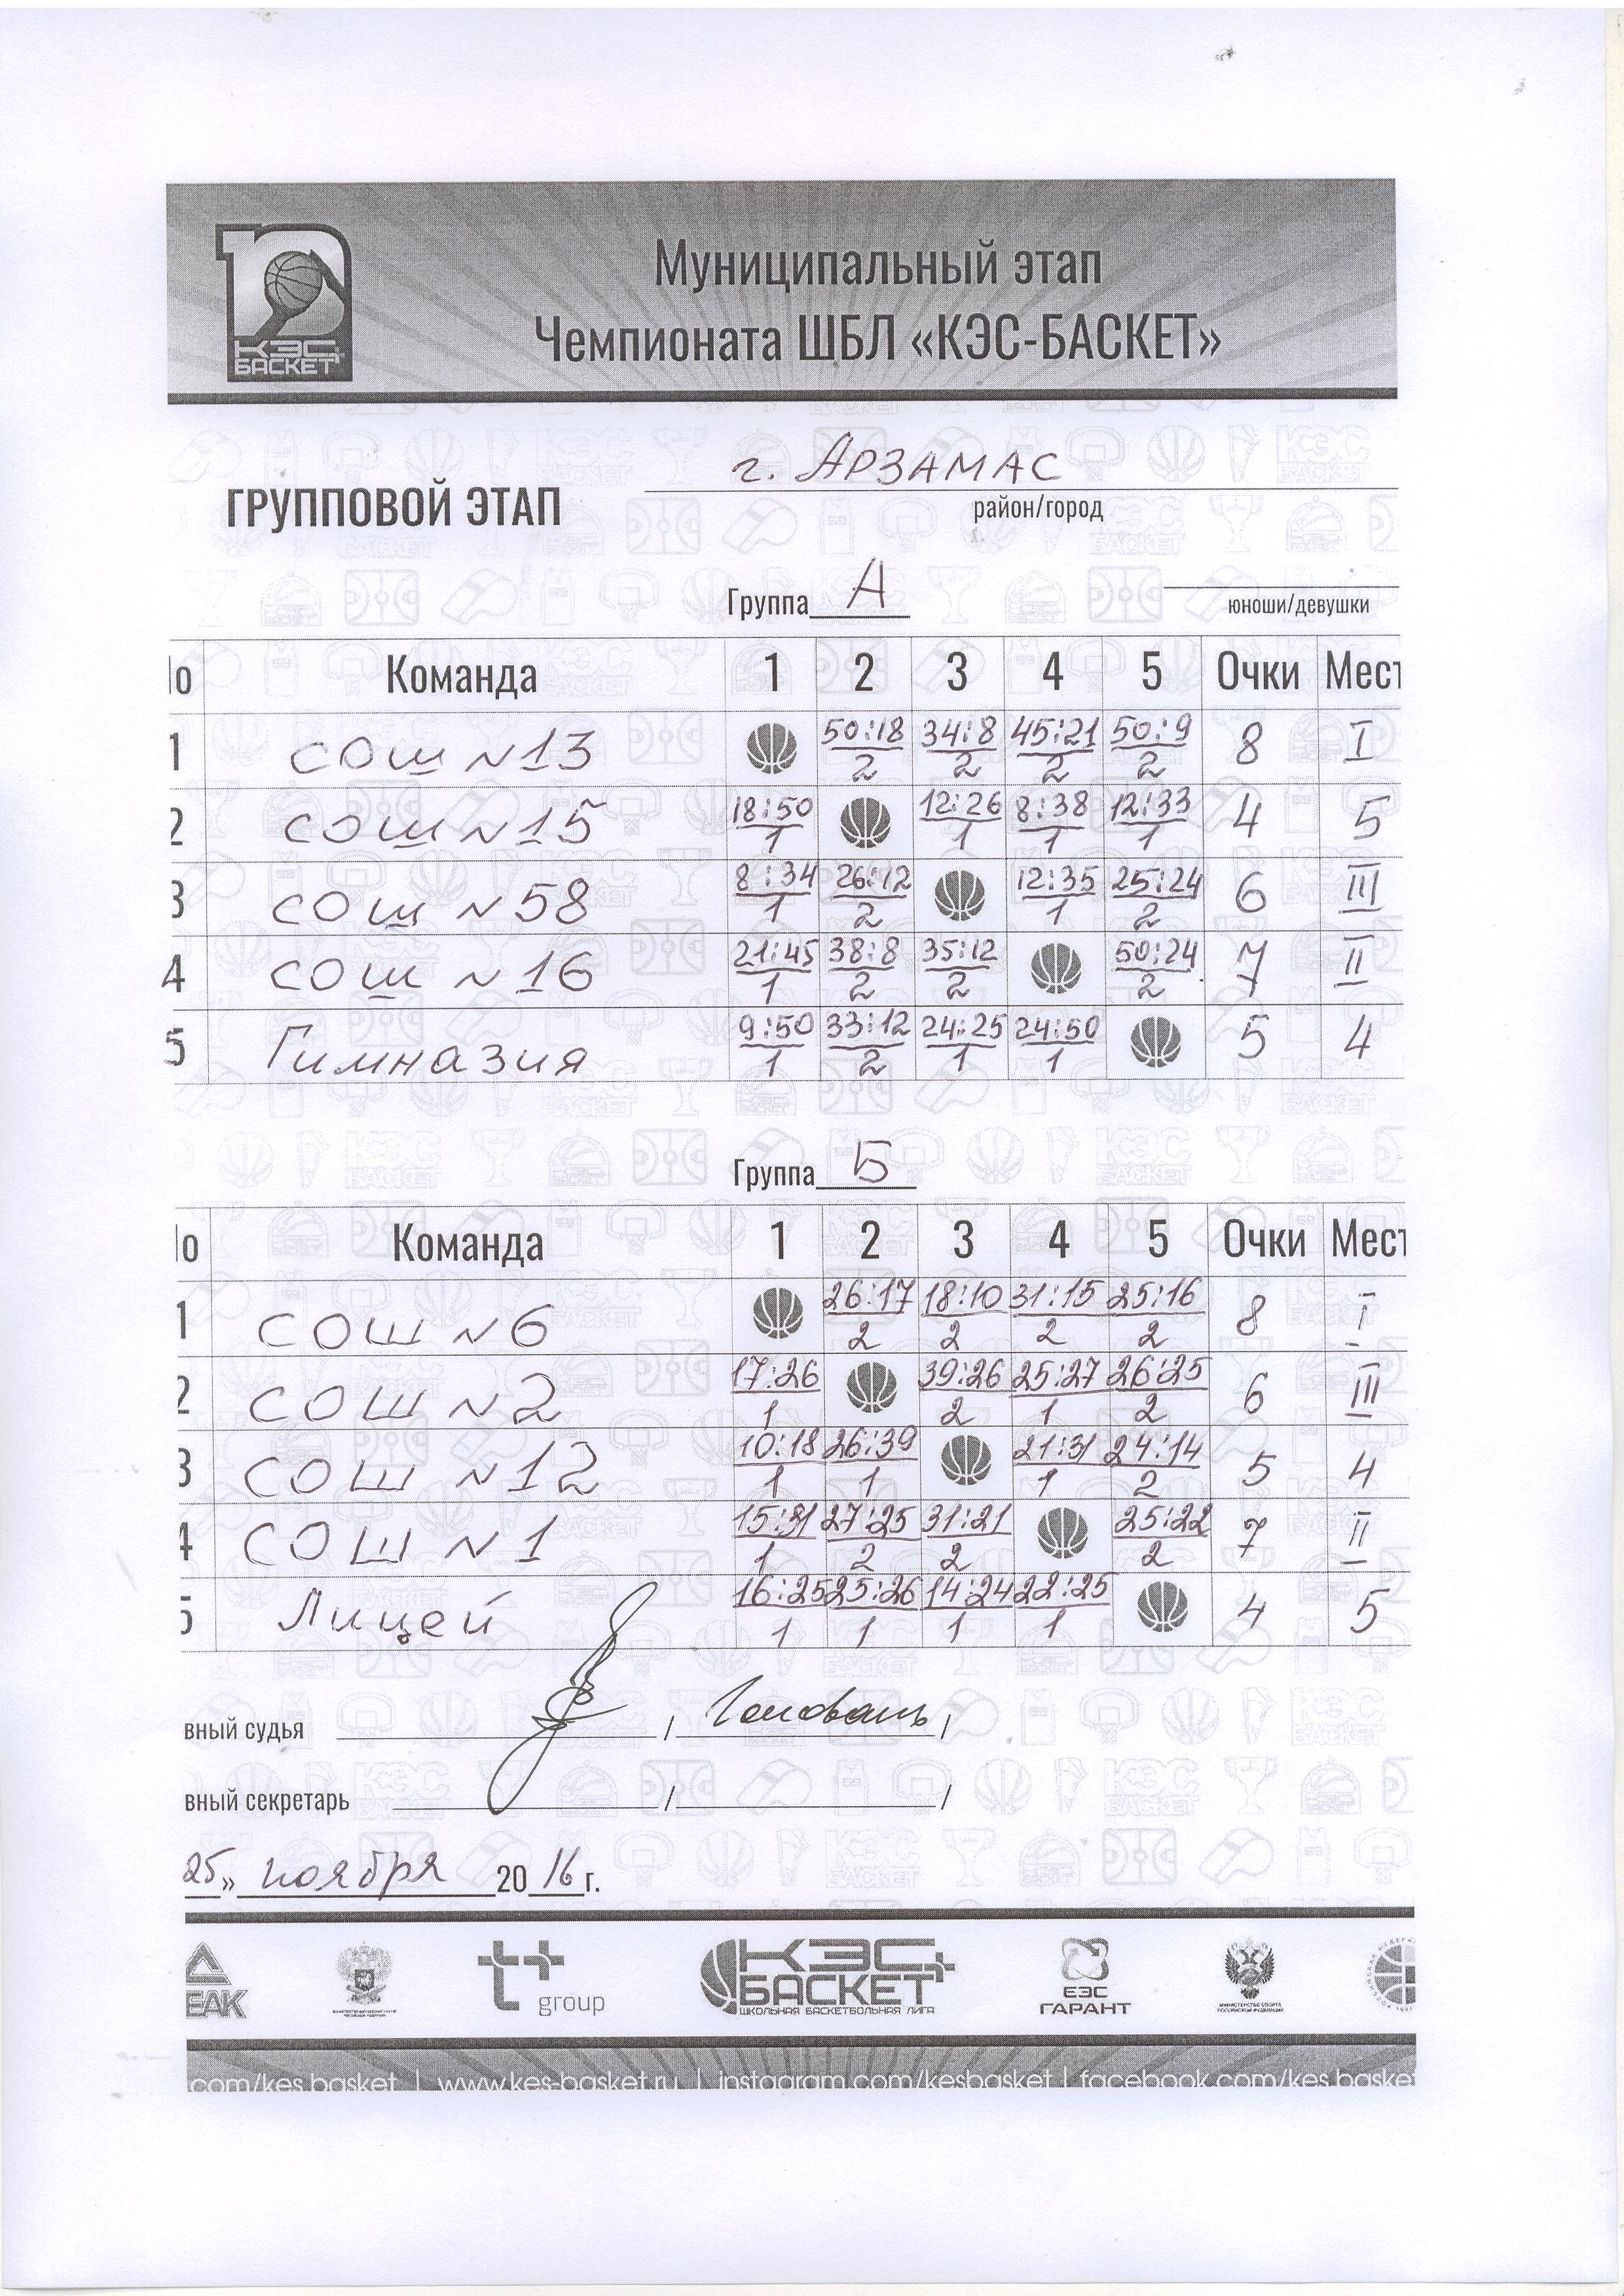 КЭС
БАСКЕТ
Муниципальный этап
Чемпионата ШБЛ «КЭС-БАСКЕТ»
г. АРЗАМАС
ГРУППОВОЙ ЭТАП
район/город
Группа А
юноши/девушки
о Команда 1 2 3 4 5 Очки Мест
1 СОШ №13 50:18 2 34:8 2 45:21 2 50:9 2 8 I
2 СОШ №15 18:50 1 12:26 1 8:38 1 12:33 1 4 5
3 СОШ №58 8:34 1 26:12 2 12:35 1 25:24 2 6 III
4 СОШ №16 21:45 1 38:8 2 35:12 2 50:24 2 7 II
5 Гимназия 9:50 1 33:12 2 24:25 1 24:50 1 5 4
Группа Б
о Команда 1 2 3 4 5 Очки Мест
1 СОШ №6 26:17 2 18:10 2 31:15 2 25:16 2 8 I
2 СОШ №2 17:26 1 39:26 2 25:27 1 26:25 2 6 III
3 СОШ №12 10:18 1 26:39 1 21:31 1 24:14 2 5 4
4 СОШ №1 15:31 1 27:25 2 31:21 2 25:22 2 7 II
5 Лицей 16:25 1 25:26 1 14:24 1 22:25 1 4 5
вный судья / /
вный секретарь / /
25» ноября 2016 г.
ЕАК
t+ group
КЭС БАСКЕТ
ШКОЛЬНАЯ БАСКЕТБОЛЬНАЯ ЛИГА
ЕЭС ГАРАНТ
МИНИСТЕРСТВО СПОРТА РОССИЙСКОЙ ФЕДЕРАЦИИ
com/kes.basket | www.kes-basket.ru | instagram.com/kesbasket | facebook.com/kes.baske